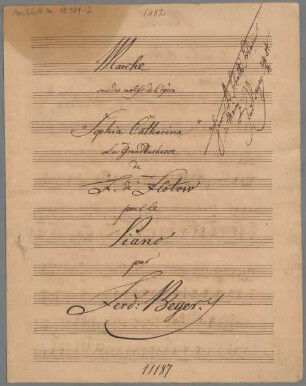 1482
Marche
sur des motifs de l'opéra
"Sophia Catharina"
La Grand Duchesse
de
F. de Flotow
pour le
Piano
par
Ferd: Beyer.
11187